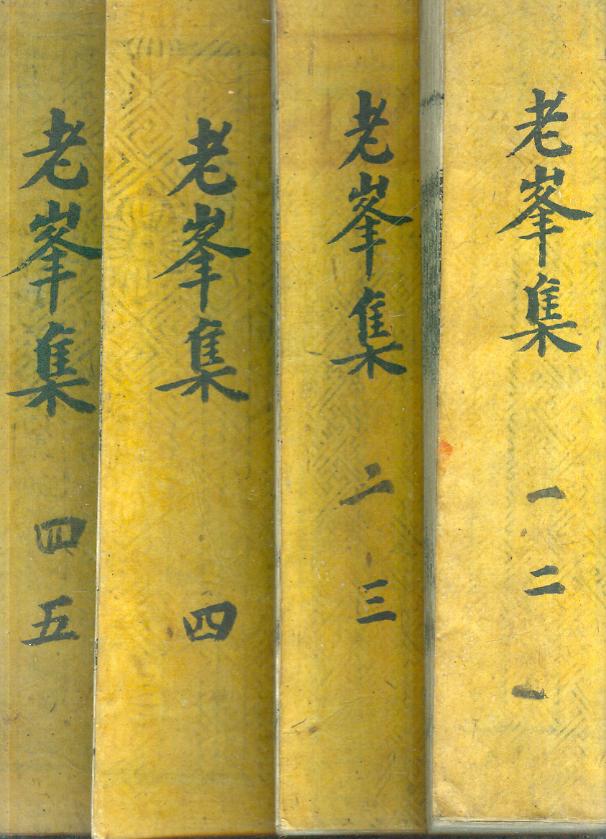 老峯集 一 二
老峯集 二 三
老峯集 四
老峯集 四 五